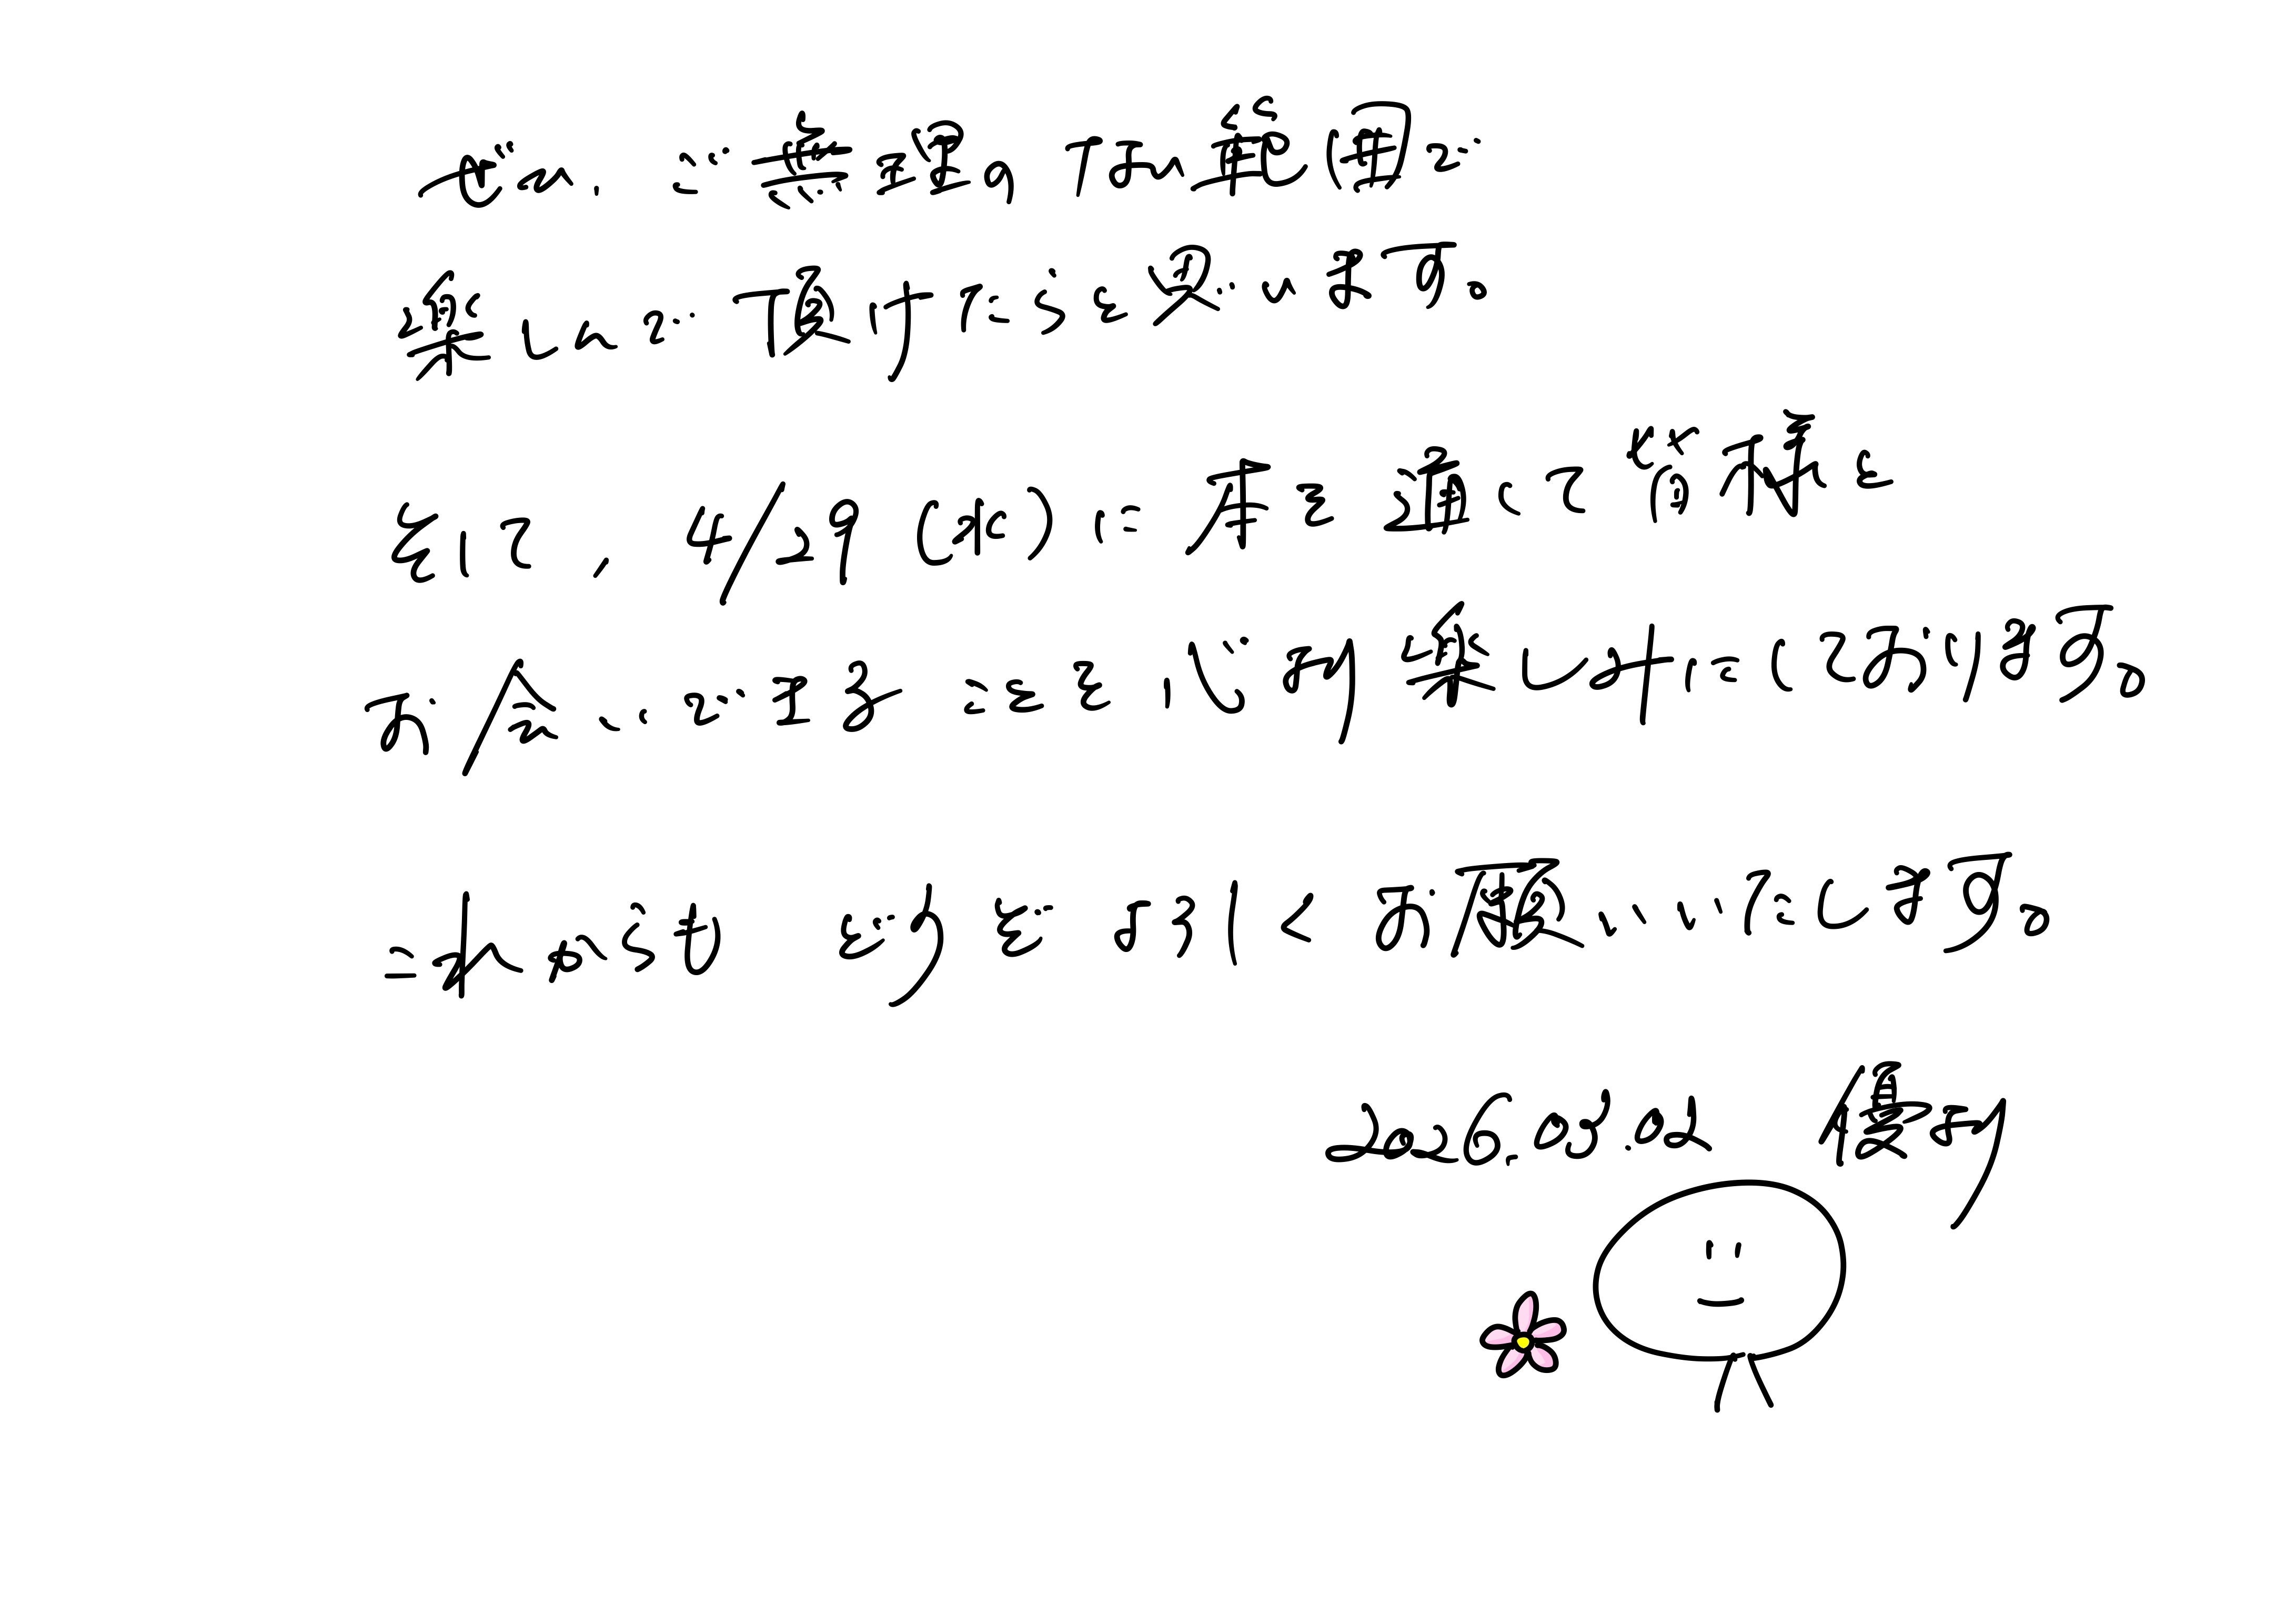 ぜひ、ご無理のない範囲で
楽しんで頂けたらと思います。
そして、4/29(水)に本を通じて皆様と
お会いできることを、心から楽しみにしております。
これからも どうぞよろしくお願いいたします。
2026.03.02